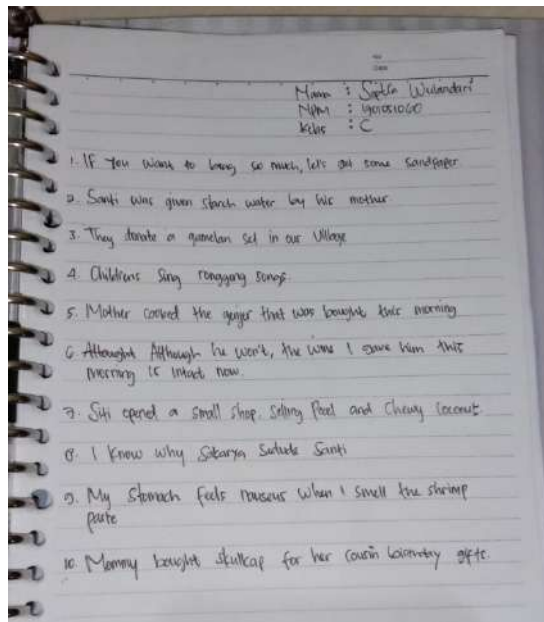 No
Date
Nama : Septia Wulandari
NPM : 1901051060
Kelas : C
1. If you want to bang so much, let's get some sandpaper
2. Santi was given starch water by his mother
3. They donate a gamelan set in our Village
4. Childrens Sing ronggeng songs.
5. Mother cooked the ginger that was bought this morning
6. Although he won't, the wine I gave him this
morning is intact now.
7. Siti opened a small shop. Selling and Chewy Coconut.
8. I know why Santi
9. My Stomach feels when I smell the shrimp
paste
10. Mommy bought skullcap for her cousin gifts.